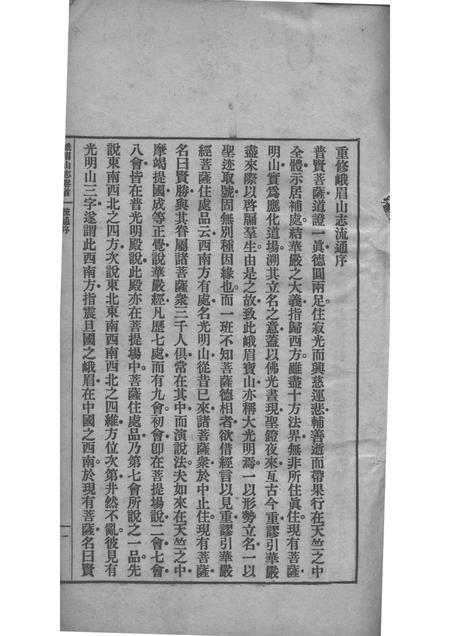 重修峨眉山志流通序
普賢菩薩道證一眞德圓兩足住寂光而興慈運悲輔善逝而帶果行在天竺之中
全體示居補處結華嚴之大義指歸西方雖盡十方法界無非所住眞住現有菩薩
明山實爲應化道場溯其立名之意蓋以佛光晝現聖燈夜來亙古今重謬引華嚴
盡來際以啓牖羣生由是之故致此峨眉寶山亦稱大光明焉一以形勢立名一以
聖迹取號固無別種因緣也而一班不知菩薩德相者欲借經言以見重謬引華嚴
經菩薩住處品云西南方有處名光明山從昔已來諸菩薩衆於中止住現有菩薩
名曰賢勝與其眷屬諸菩薩衆三千人俱常在其中而演說法夫如來在天竺之中
摩竭提國成等正覺說華嚴經凡歷七處而有九會初會卽在菩提場說二會七會
八會皆在普光明殿說此殿亦在菩提場中菩薩住處品乃第七會所說之一品先
說東南西北之四方次說東北東南西南西北之四維方位次第井然不亂彼見有
光明山三字遂謂此西南方指震旦國之峨眉在中國之西南於現有菩薩名曰賢
峨眉山志卷首
流通序
一